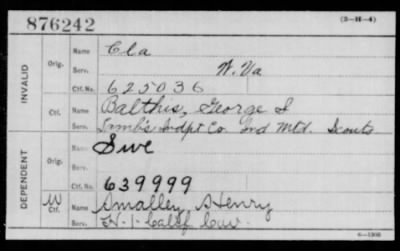 876242
(3-H-4)
INVALID
Orig.
Name Cla
Serv. W. Va
Ctf. No. 625036
Ctf.
Name Balthis, George S
Serv. Indpt Co. Ind Mtd. Scouts
DEPENDENT
Orig.
Name Swe
Serv.
Ctf. No. 639999
W
Ctf.
Name Smalley, Henry
Serv. H-1-Calif. Cav.
6-1308